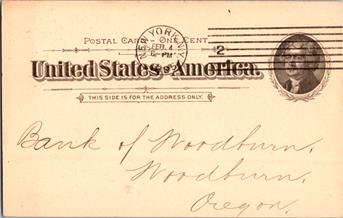 POSTAL CARD – ONE CENT.
NEW YORK, N.Y.
FEB. 4
6 PM
2
United States of America.
THIS SIDE IS FOR THE ADDRESS ONLY.
Bank of Woodburn,
Woodburn,
Oregon.